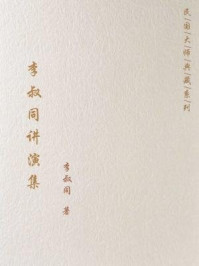 民国大师典藏系列
李叔同讲演集
李叔同 著